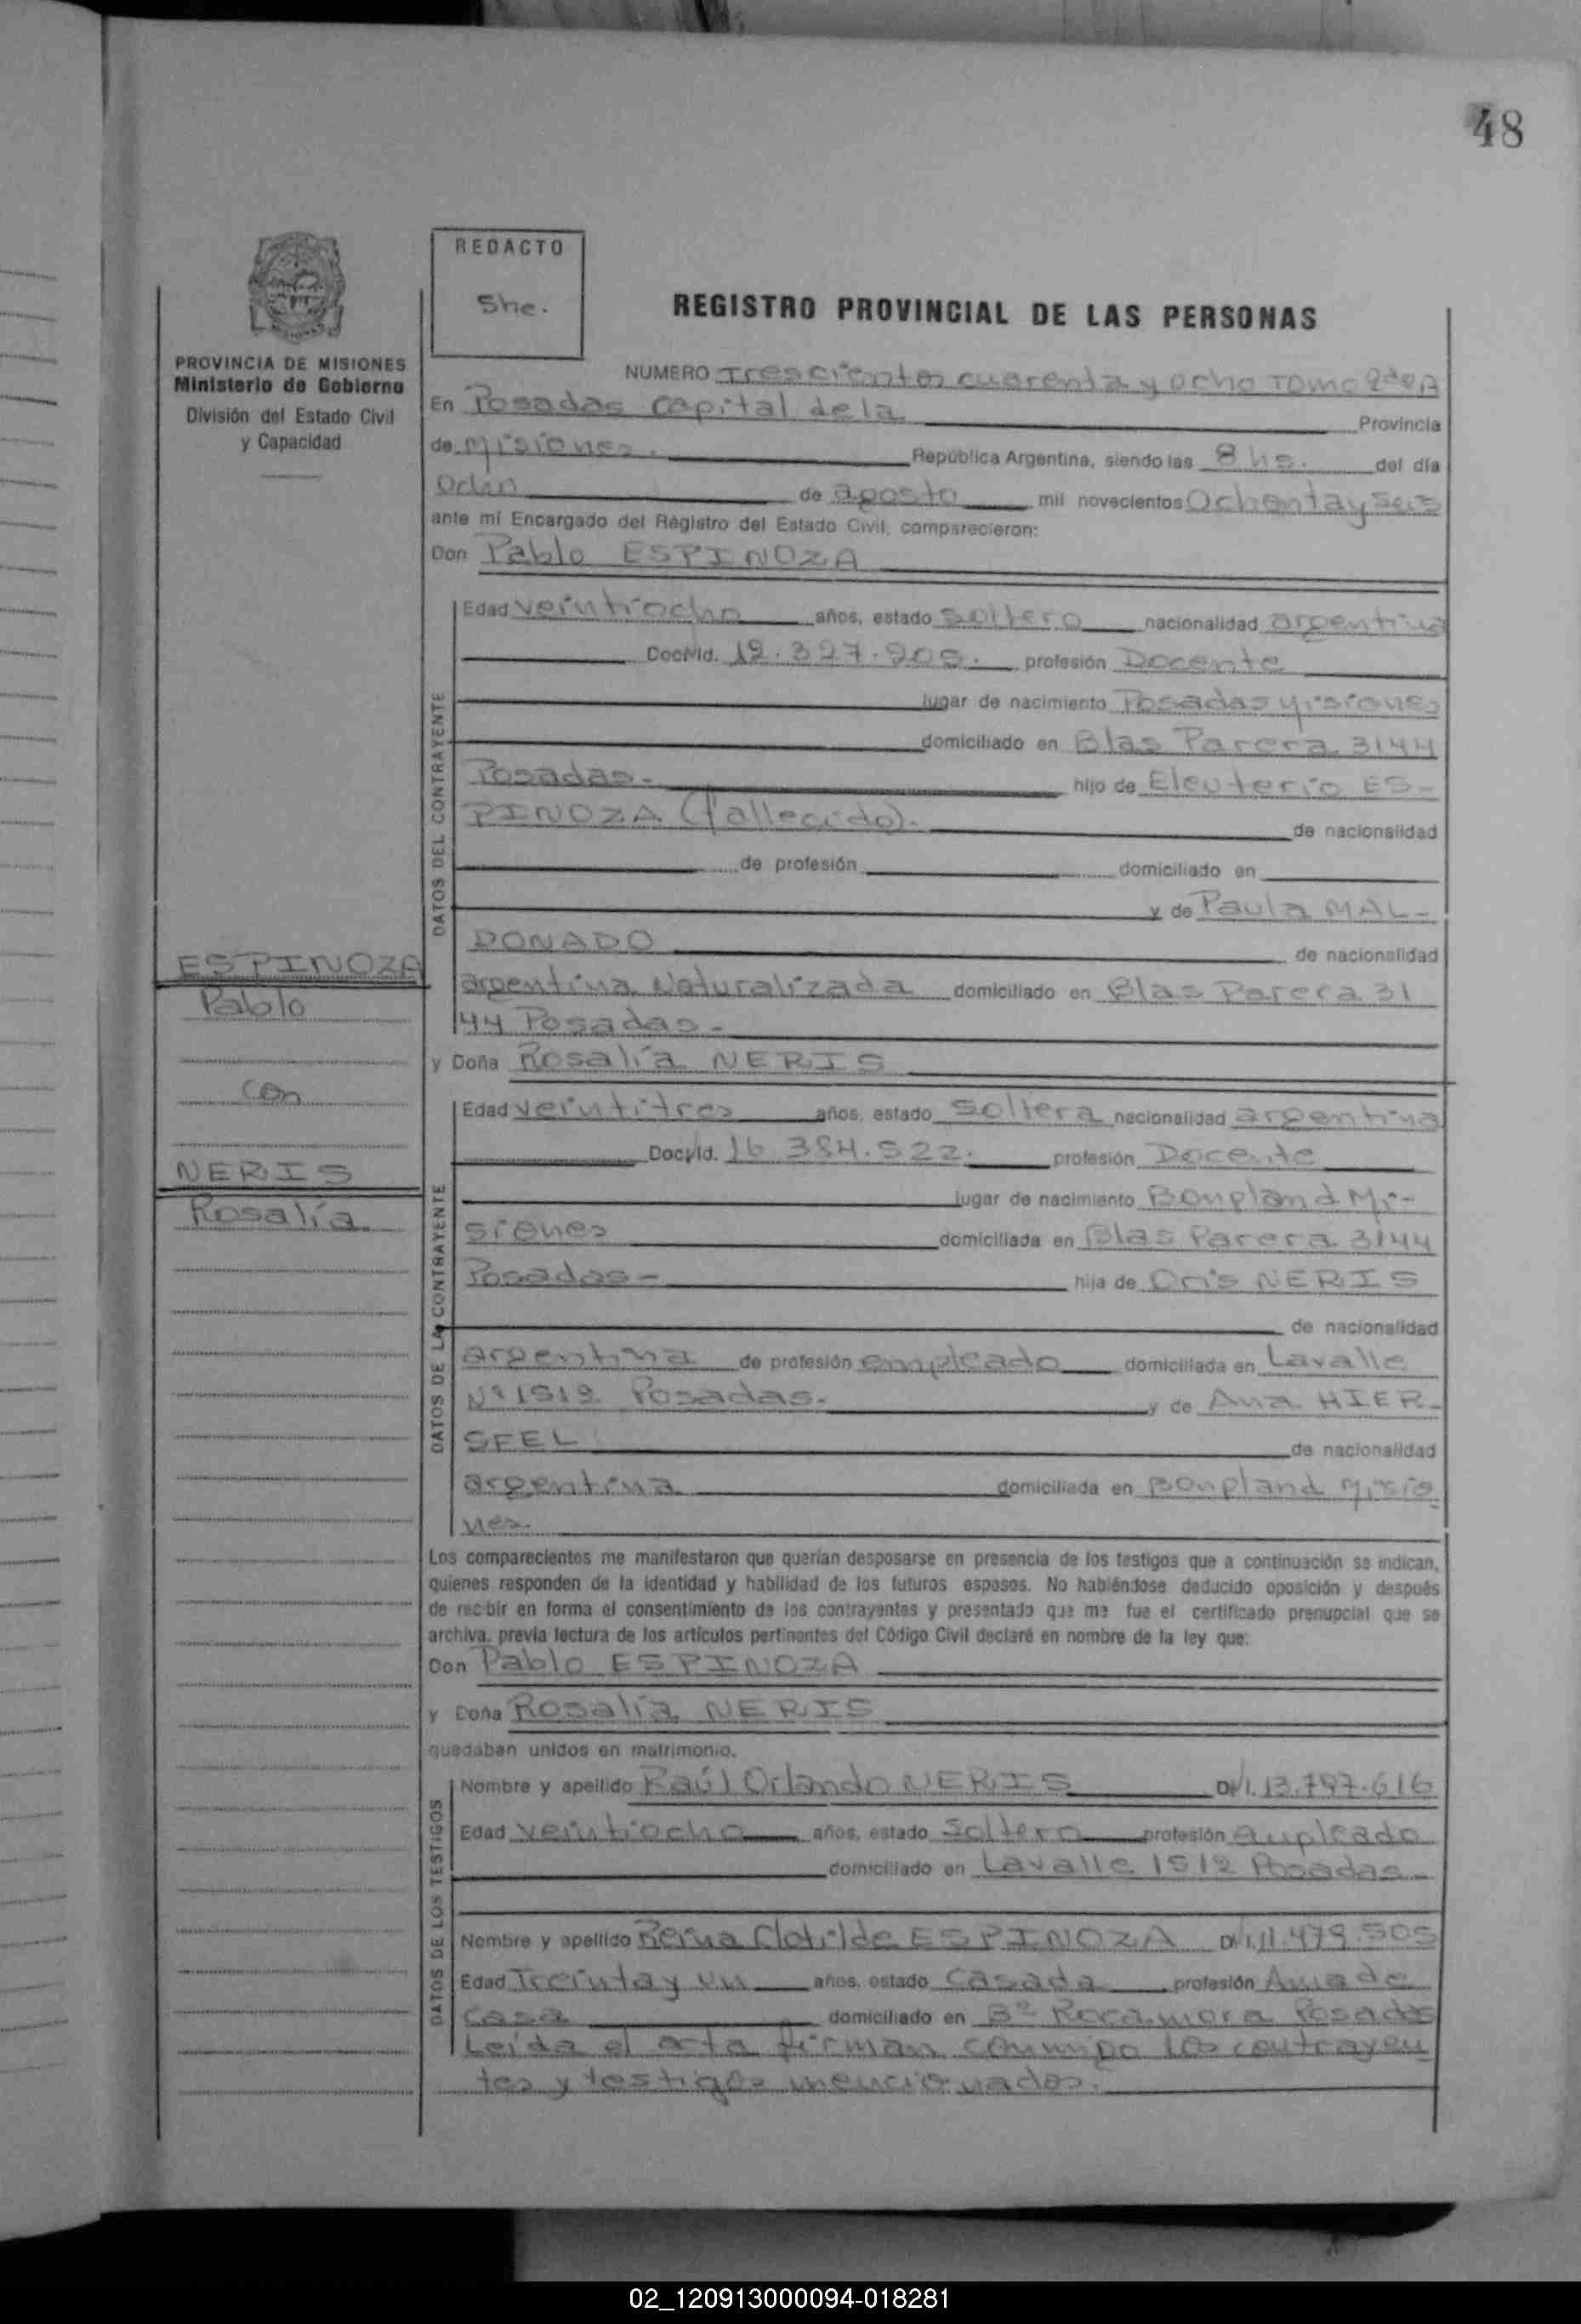 48
REDACTO
She.
REGISTRO PROVINCIAL DE LAS PERSONAS
PROVINCIA DE MISIONES
Ministerio de Gobierno
División del Estado Civil
y Capacidad
NUMERO Trescientos cuarenta y ocho Tomo 2do A
En Posadas capital de la Provincia
de Misiones. República Argentina, siendo las 8 hs. del día
Ocho de agosto mil novecientos Ochenta y seis
ante mí Encargado del Registro del Estado Civil, comparecieron:
Don Pablo ESPINOZA
DATOS DEL CONTRAYENTE
Edad veintiocho años, estado soltero nacionalidad argentina
Doc. Id. 12.327.905. profesión Docente
lugar de nacimiento Posadas Misiones
domiciliado en Blas Parera 3144
Posadas.- hijo de Eleuterio ES-
PINOZA (fallecido).- de nacionalidad
de profesión domiciliado en
y de Paula MAL-
DONADO de nacionalidad
argentina Naturalizada domiciliado en Blas Parera 31
44 Posadas.-
y Doña Rosalía NERIS
ESPINOZA
Pablo
con
NERIS
Rosalía
DATOS DE LA CONTRAYENTE
Edad veintitres años, estado soltera nacionalidad argentina
Doc. Id. 16.384.522. profesión Docente
lugar de nacimiento Bonpland Mi-
siones domiciliada en Blas Parera 3144
Posadas- hija de Oris NERIS
de nacionalidad
argentina de profesión empleado domiciliada en Lavalle
Nº 1512 Posadas.- y de Ana HIER-
SFEL de nacionalidad
argentina domiciliada en Bonpland Misio
nes.
Los comparecientes me manifestaron que querían desposarse en presencia de los testigos que a continuación se indican,
quienes responden de la identidad y habilidad de los futuros esposos. No habiéndose deducido oposición y después
de recibir en forma el consentimiento de los contrayentes y presentado que me fue el certificado prenupcial que se
archiva, previa lectura de los artículos pertinentes del Código Civil declaré en nombre de la ley que:
Don Pablo ESPINOZA
y Doña Rosalía NERIS
quedaban unidos en matrimonio.
DATOS DE LOS TESTIGOS
Nombre y apellido Raúl Orlando NERIS D.I. 13.797.616
Edad veintiocho años, estado soltero profesión Empleado
domiciliado en Lavalle 1512 Posadas-
Nombre y apellido Reina Clotilde ESPINOZA D.I. 11.479.505
Edad Treinta y un años, estado casada profesión Ama de
casa domiciliado en Bº Rocamora Posadas
Leída el acta firman conmigo los contrayen
tes y testigos mencionados.-
02_120913000094-018281